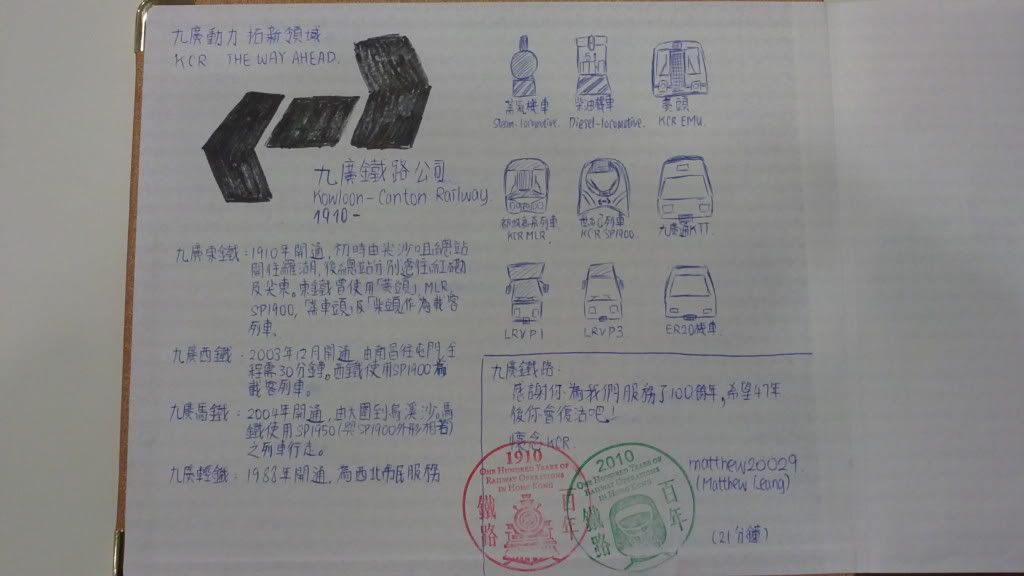 九廣動力 拓新領域
KCR THE WAY AHEAD.
九廣鐵路公司
Kowloon-Canton Railway
1910-
九廣東鐵：1910年開通，初時由尖沙咀總站
開往羅湖，後總站分別遷往紅磡
及尖東。東鐵曾使用「黃頭」MLR,
SP1900,「蒸車頭」及「柴頭」作為載客
列車。
九廣西鐵：2003年12月開通，由南昌往屯門，全
程需30分鐘。西鐵使用SP1900為
載客列車。
九廣馬鐵：2004年開通，由大圍到烏溪沙。馬
鐵使用SP1950(與SP1900外形相若)
之列車行走。
九廣輕鐵：1988年開通，為西北市民服務
蒸氣機車
Steam-locomotive.
柴油機車
Diesel-locomotive.
黃頭
KCR EMU.
列車
KCR MLR.
列車
KCR SP1900.
九廣通KTT.
LRVP1
LRVP3
ER20機車
九廣鐵路：
感謝你為我們服務了100餘年，希望47年
後你會復活吧！
懷念KCR.
matthew20029.
(Matthew Leung)
(21分鐘)
1910
ONE HUNDRED YEARS OF
RAILWAY OPERATIONS
IN HONG KONG
鐵路
百年
2010
ONE HUNDRED YEARS OF
RAILWAY OPERATIONS
IN HONG KONG
鐵路
百年